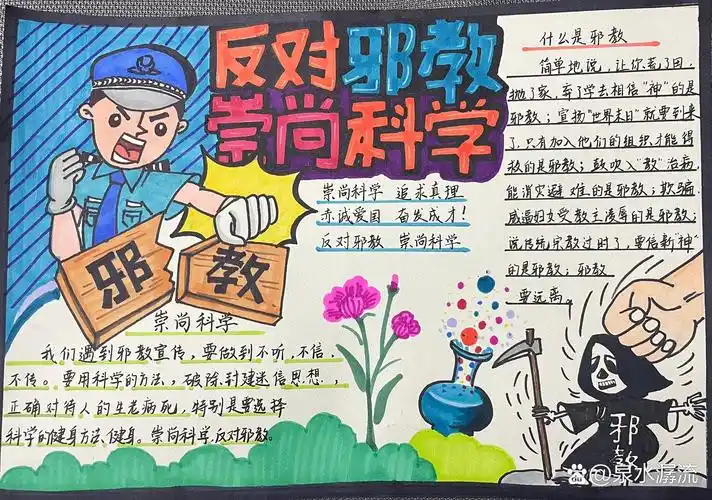 反对邪教
崇尚科学
什么是邪教
简单地说，让你丢了国，
抛了家，弃了学去相信"神"的是
邪教；宣扬"世界末日"就要到来
了，只有加入他们的组织才能得
救的是邪教；鼓吹入"教"治病
能消灾避难的是邪教；欺骗
威逼妇女受教主凌辱的是邪教；
说传统宗教过时了，要信新"神"
的是邪教；邪教
要远离。
崇尚科学 追求真理
亦诚爱国 奋发成才！
反对邪教 崇尚科学
邪
教
崇尚科学
我们遇到邪教宣传，要做到不听，不信，
不传。要用科学的方法，破除封建迷信思想
正确对待人的生老病死，特别是要选择
科学的健身方法健身。崇尚科学，反对邪教。
邪
教
@泉水潺流